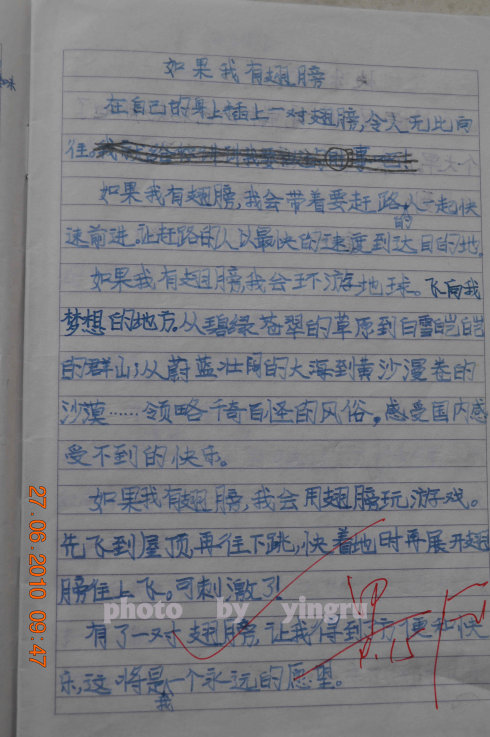 如果我有翅膀
在自己的身上插上一对翅膀,令人无比向
往。
如果我有翅膀,我会带着要赶路的人一起快
速前进。让赶路的人以最快的速度到达目的地。
如果我有翅膀,我会环游地球。飞向我
梦想的地方。从碧绿苍翠的草原到白雪皑皑
的群山;从蔚蓝壮阔的大海到黄沙漫卷的
沙漠……领略千奇百怪的风俗,感受国内感
受不到的快乐。
如果我有翅膀,我会用翅膀玩游戏。
先飞到屋顶,再往下跳,快着地时再展开翅
膀往上飞。可刺激了!
有了一对翅膀,让我得到方便和快
乐,这将是我一个永远的愿望。
photo by yingru
27.06.2010 09:47